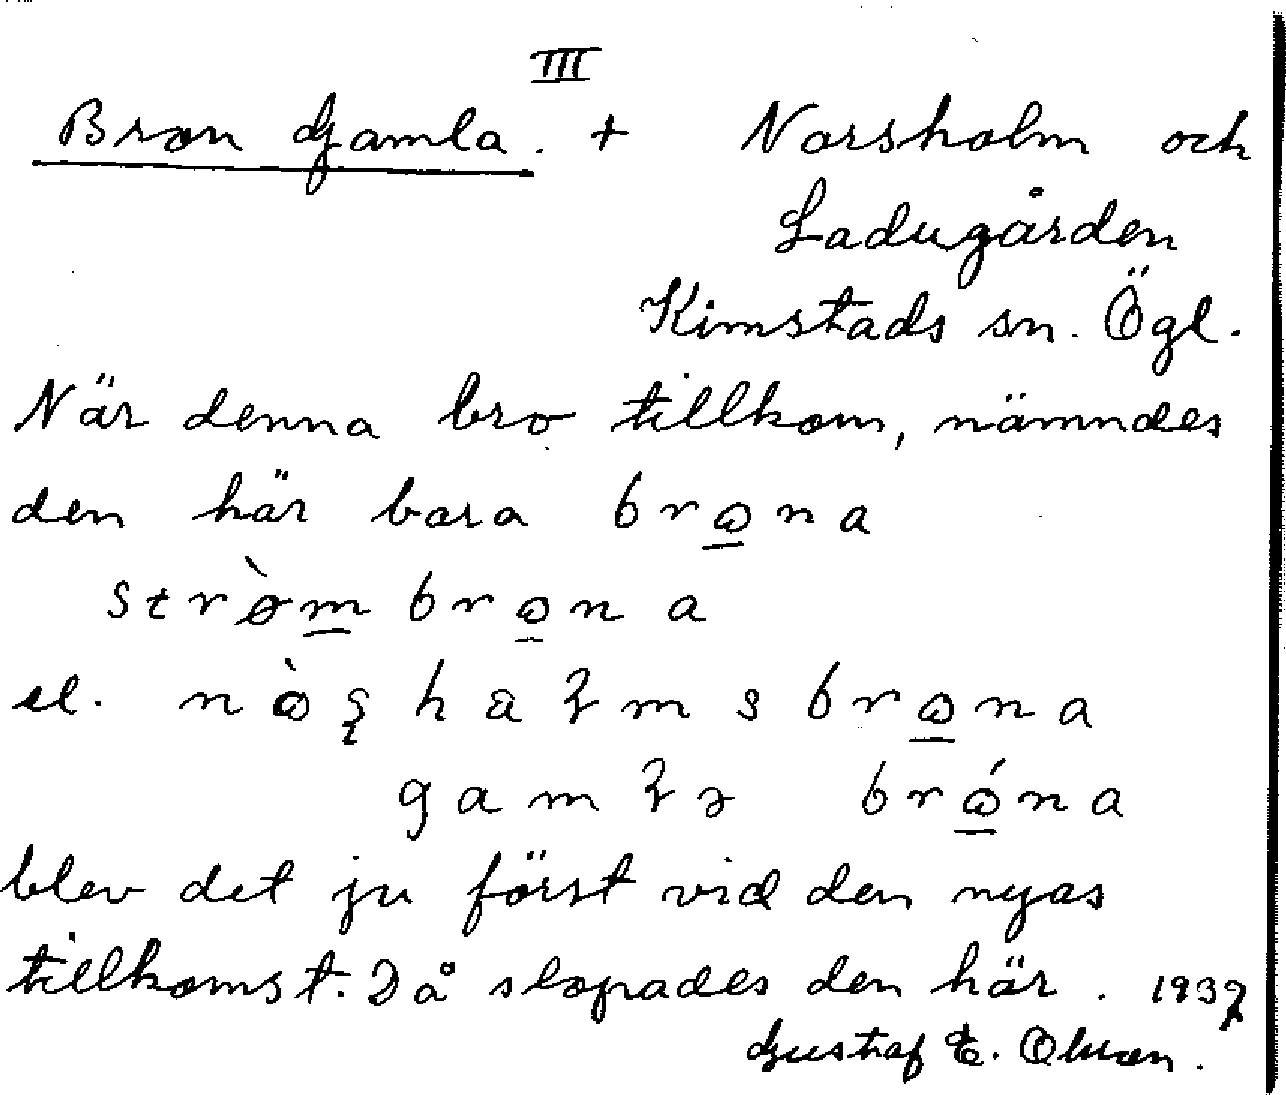 III
Bron Gamla. + Norsholm och
Ladugården
Kimstads sn. Ögl.
När denna bro tillkom, nämndes
den här bara brona
strømbrona
el. nòʂhaɽmsbrona
gamɽə bróna
blev det ju först vid den nyas
tillkomst. Då slopades den här. 1937
Gustaf E.